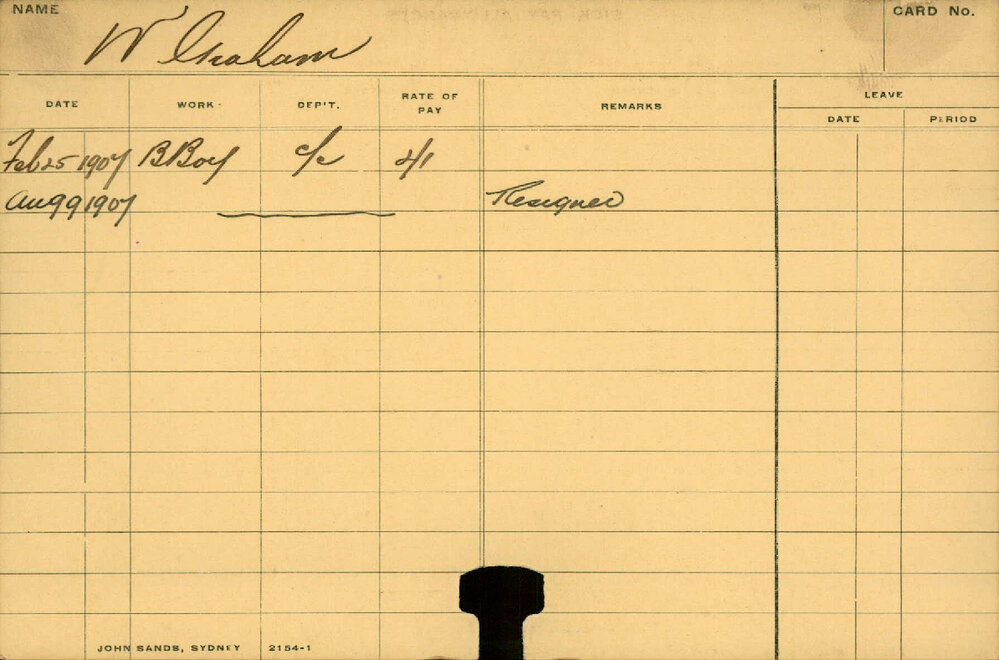 NAME
W Graham
CARD No.
DATE WORK DEP'T. RATE OF PAY REMARKS LEAVE
DATE PERIOD
Feb 25 1907 B Boy c/c
Aug 9 1907 Resigned
JOHN SANDS, SYDNEY 2154-1